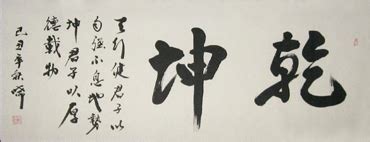 乾坤
天行健君子以
自强不息地势
坤君子以厚
德载物
己丑年秋